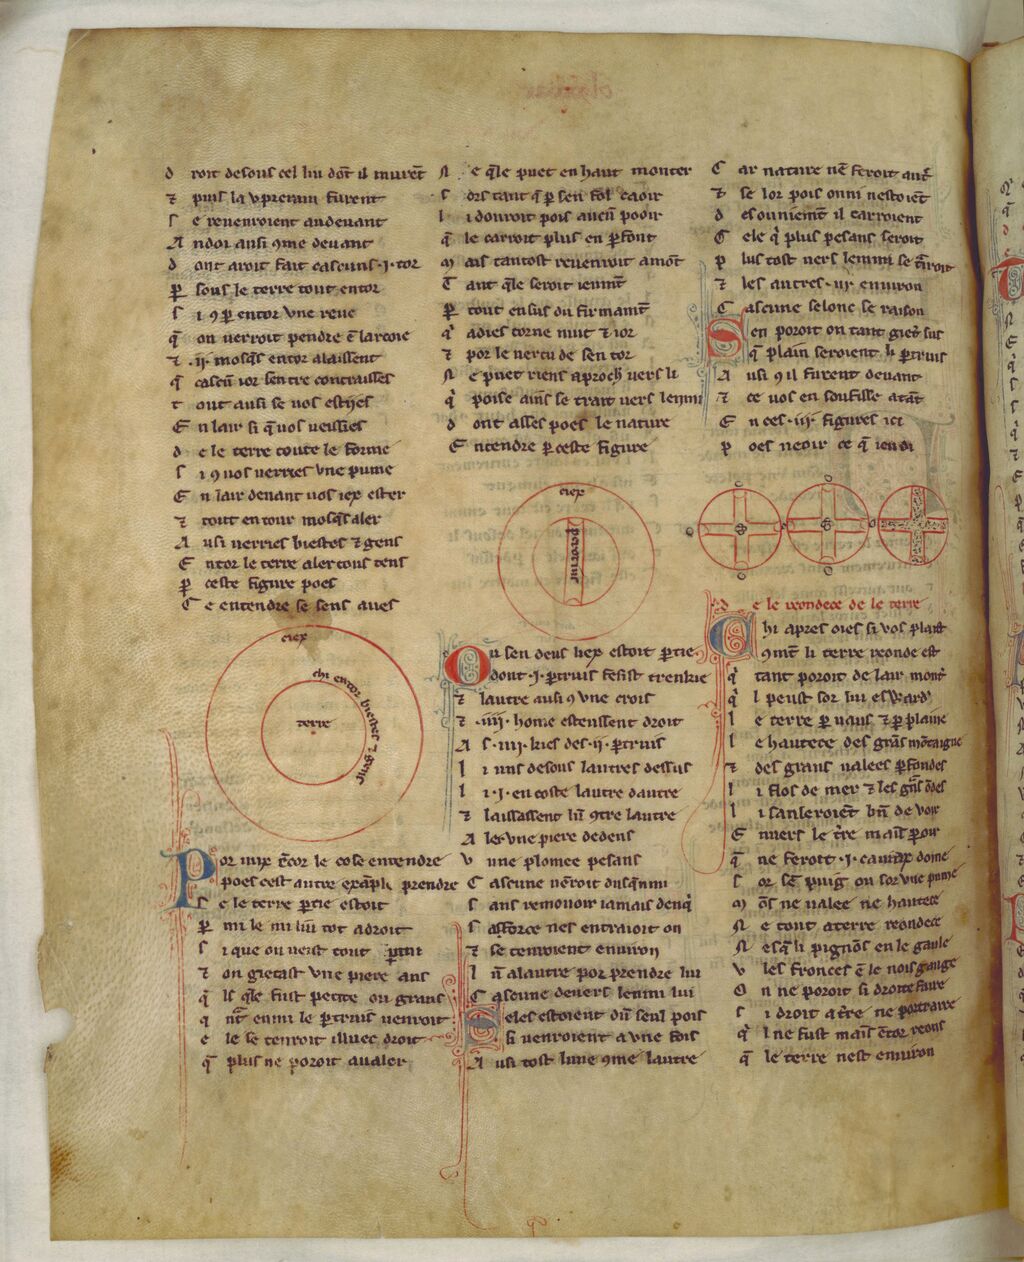 d roit desous cel liu dōt il murēt
⁊ puis la v premiu furent
s e reuenroient au deuant
A ndoi ausi ꝯme deuant
d ont aroit fait cascuns ·i· tor
ꝑ sous le terre tout entor
s i ꝯ ꝑ entor vne reue
q̄ on uerroit pendre ē larcoie
⁊ ·ii· mosq̄s entor alaissent
q̄ cascū ior sentre contraisses
t out ausi se uos estijes
E n lair si q̄ uos ueissies
d e le terre toute le forme
s i ꝯ uos uerries vne pume
E n lair deuant uos iex ester
⁊ tout entour mosq̄s aler
A usi uerries biestes ⁊ gens
E ntor le terre aler tous tens
ꝑ ceste figure poes
C e entendre se sens aues
ciex
chi entor biestes ⁊ gens
terre
Por mix ēcor le cose entendre
Poes cest autre exāple prendre
S e le terre ꝑcie estoit
ꝑ mi le mi liu tot adroit
S i que on ueist tout
⁊ on gietast vne piere ans
q̄ ls q̄le fust petite ou grans
q nt̄ enmi le ꝑtruis uenroit
e le se tenroit illuec droit
q̄ plus ne poroit aualer
N e q̄le puet en haut monter
s ors tant q̄ ꝑ sen fol caoir
l i donroit pois aucū pooir
q̄ le carroit plus en ꝑfont
M ais tantost reuenroit amōt
T ant q̄le seroit ienmt̄
ꝑ tout ensus du firmamt̄
q̍ adies torne nuit ⁊ ior
⁊ por le uertu de sen tor
N e puet riens aproch̄ uers li
q̍ poise ains se trait uers lenmi
d ont asses poes le nature
E ntendre ꝑ ceste figure
ciex
Ou sen deus liex estoit ꝑcie
dont ·i· ꝑtruis fesist trenkie
⁊ lautre ausi ꝯ vne crois
⁊ ·iiii· home estenssent droit
A s ·iiii· kies des ·ii· ꝑtruis
l i uns desous lautres dessus
l i ·i· en coste lautre dautre
⁊ laissassent lun̄ ꝯtre lautre
A ler vne piere dedens
V une plomee pesans
C ascune uēroit dusq̄nmi
S ans remouoir iamais denq̍
S afforce nes entraioit on
⁊ se tenroient enuiron
l ū a lautre por prendre liu
C ascune deuers lenmi liu
Seles estoient dū seul pois
Si uenroient a vne fois
A usi tost lune ꝯme lautre
C ar nature nē feroit aut̄
⁊ se lor pois onni nestoiēt
d esouniemt̄ il carroient
C ele q̍ plus pesans seroit
P lus tost uers lenmi se t̄roit
⁊ les autres ·iii· enuiron
C ascune selonc se raison
Sen poroit on tant giet̄ sus
q̄ plain seroient li ꝑtruis
A usi ꝯ il furent deuant
⁊ ce uos en souffisse atāt
E n ces ·iii· figures ici
P oes ueoir ce q̄ ien di
d e le reondece de le terre
Chi apres oies si vos plaist
ꝯmt̄ li terre reonde est
q̍ tant poroit de lair mont̄
q̍ l peust sor lui esward̄
l e terre ꝑ uaus ⁊ ꝑ plaine
l e hautece des grās mōtaigne
⁊ des grans ualees ꝑfondes
l i flos de mer ⁊ les grās ōdes
l i sanleroiēt bn̄ de voir
E nuers le tr̄e mais pooir
q̄ ne feroit ·i· caueix dome
S or sē puig ou sor vne pume
M ōs ne ualee ne hautece
N e tout a terre reondece
N es q̄ li pignōs en le gaule
V les fronces ē le nois gauge
O n ne poroit si droite faire
S i droit a tr̄e ne portraire
q̍ l ne fust mais ētor reons
q̄ le terre nest enuiron